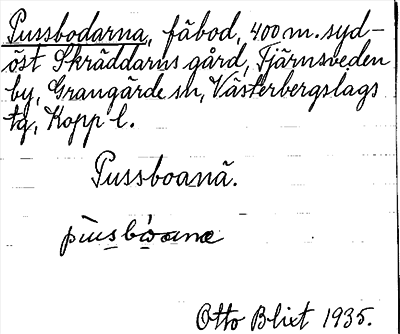 Pussbodarna, fäbod, 400 m. syd-
öst Skräddarns gård, Tjärnsveden
by, Grangärde sn, Västerbergslags
tg, Kopp l.
Pussboanä.
Otto Blixt 1935.